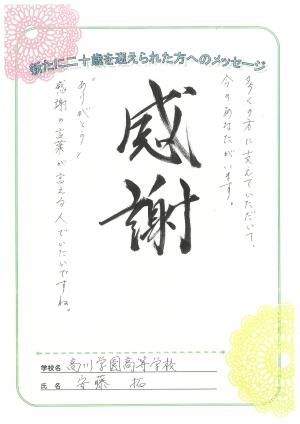 新たに二十歳を迎えられた方へのメッセージ
多くの方に支えていただいて、
今のあなたがいます。
感謝
"ありがとう"
感謝の言葉が言える人でいたいですね。
学校名 高川学園高等学校
氏名 安藤 拓